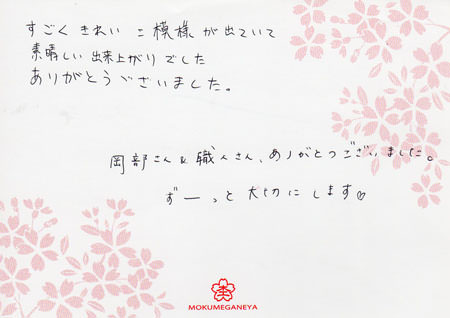 すごく きれい に 模様 が 出ていて
素晴しい 出来上がり でした
ありがとうございました。
岡部さん&職人さん、ありがとうございました。
ずーっと 大切に します♡
MOKUMEGANEYA